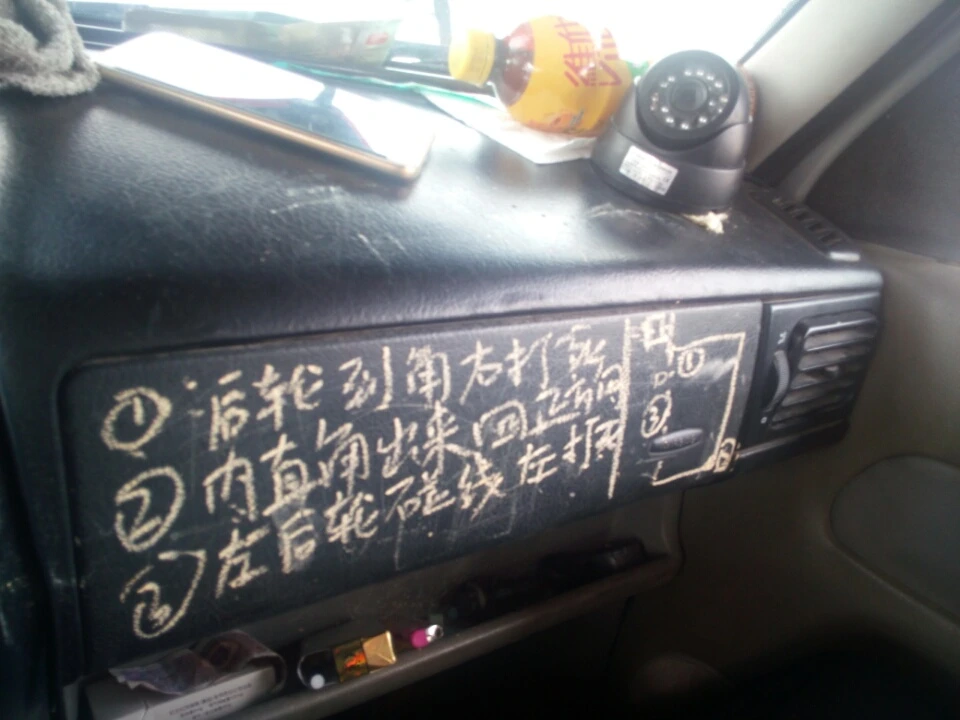 维他
Vita
① 后轮到角右打死
② 内直角出来回正后向
③ 左后轮碰线左打死
①
③
②